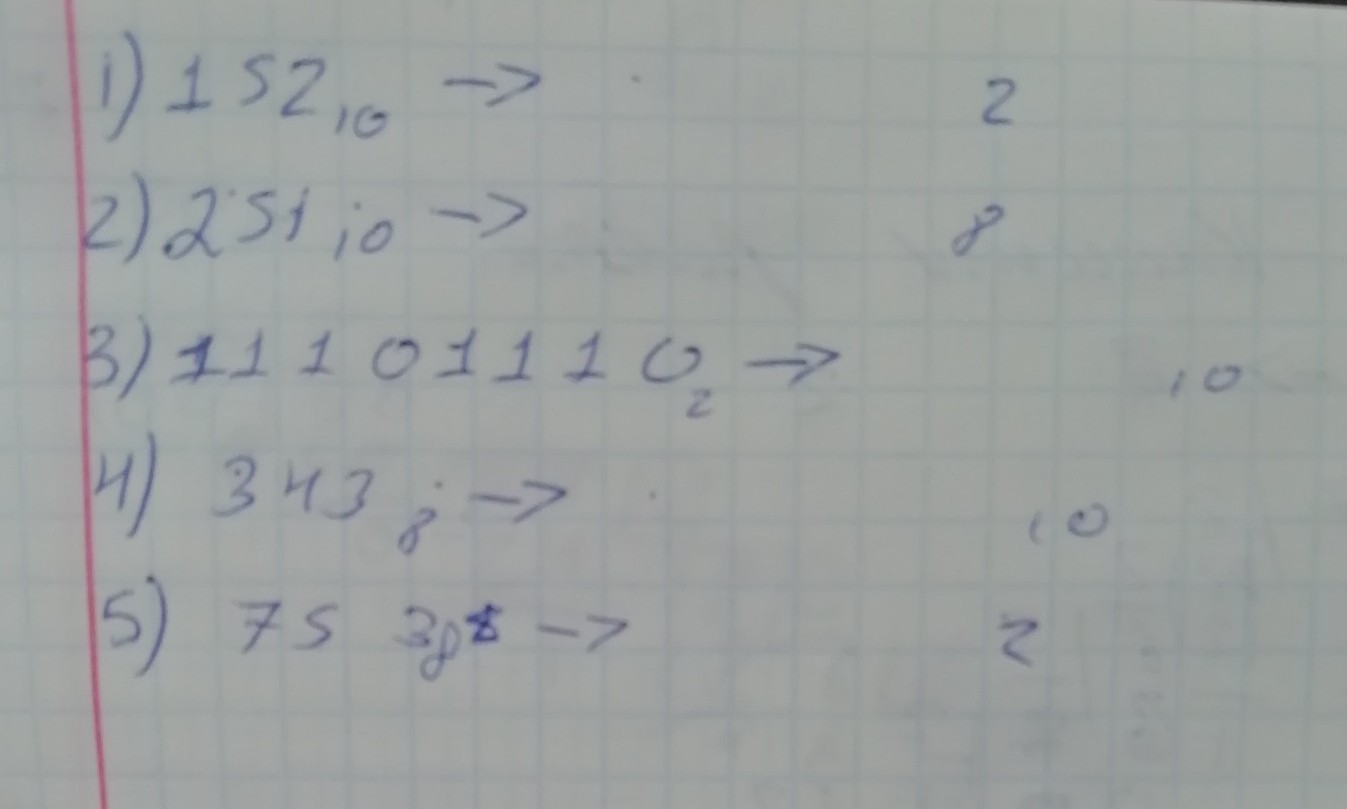 1) 152₁₀ → ₂
2) 251₁₀ → ₈
3) 11101110₂ → ₁₀
4) 343₈ → ₁₀
5) 753₈ → ₂